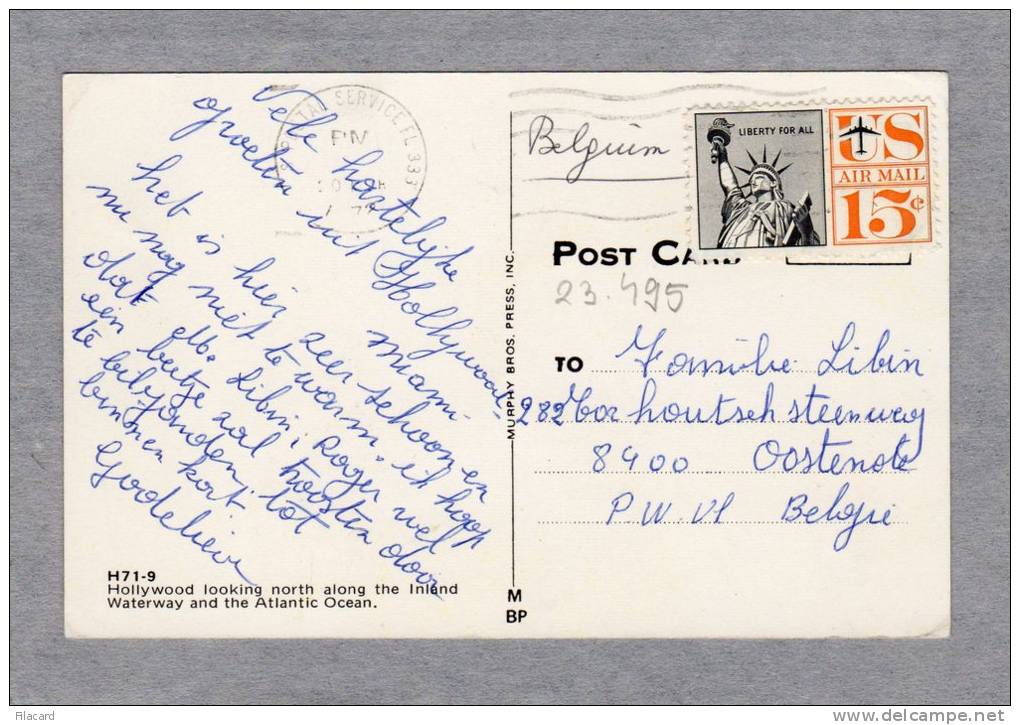 Vele hartelijke
groeten uit Hollywood-
Miami
het is hier zeer schoon en
nu nog niet te warm. ik hoop
dat elb. Libin, Roger wel
een beetje zal troosten door
te bibjanden, tot
binnen kort
Godelieve
H71-9
Hollywood looking north along the Inland
Waterway and the Atlantic Ocean.
POSTAL SERVICE FL 333
PM
MURPHY BROS. PRESS, INC.
M
BP
Belgium
LIBERTY FOR ALL
US
AIR MAIL
15¢
POST CARD
23.495
TO Familie Libin
282 Torhoutsch steenweg
8400 Oostende
P.W.Vl België
Filacard
delcampe.net